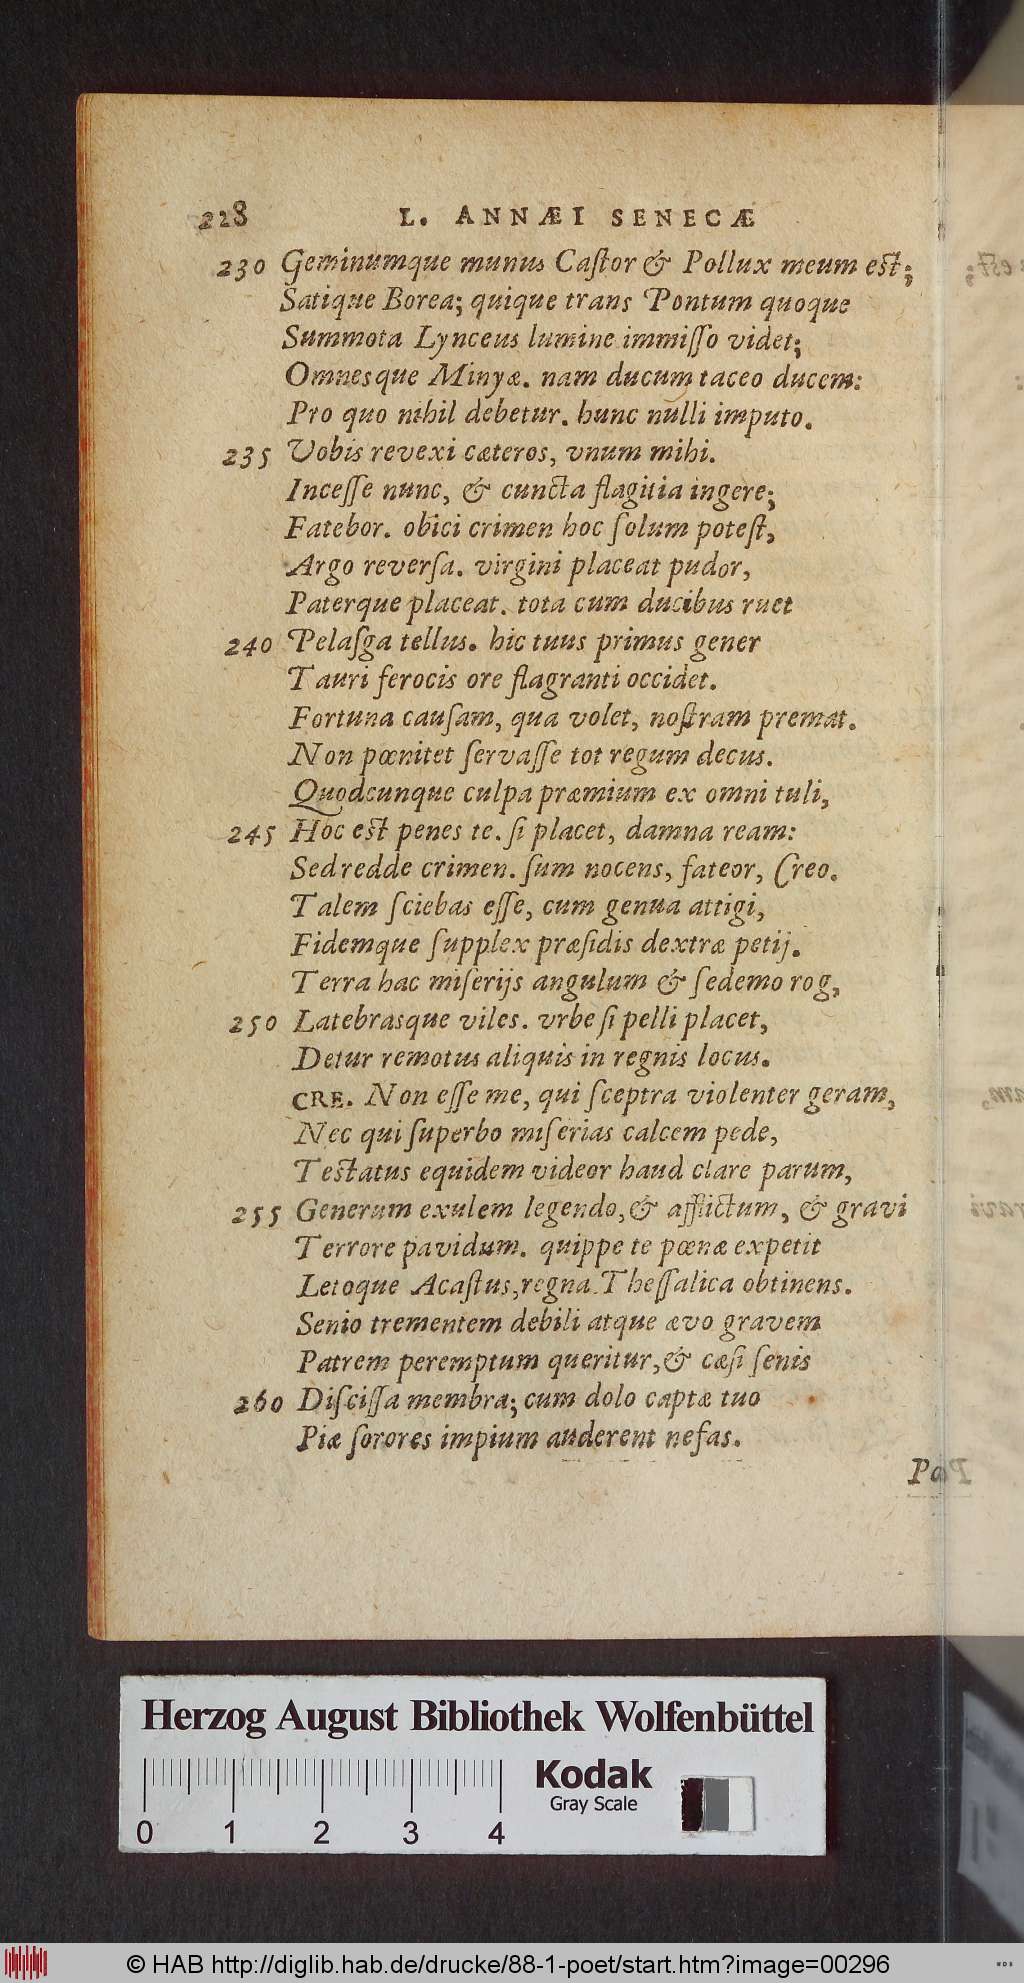 228 L. ANNÆI SENECÆ
230 Geminumque munus Caſtor & Pollux meum est;
Satique Borea; quique trans Pontum quoque
Summota Lynceus lumine immiſſo videt;
Omnesque Minyæ. nam ducum taceo ducem:
Pro quo nihil debetur. hunc nulli imputo.
235 Vobis revexi cæteros, vnum mihi.
Inceſſe nunc, & cuncta flagitia ingere;
Fatebor. obici crimen hoc ſolum poteſt,
Argo reverſa. virgini placeat pudor,
Paterque placeat. tota cum ducibus ruet
240 Pelaſga tellus. hic tuus primus gener
Tauri ferocis ore flagranti occidet.
Fortuna cauſam, qua volet, noſtram premat.
Non pœnitet ſervaſſe tot regum decus.
Quodcunque culpa præmium ex omni tuli,
245 Hoc est penes te. ſi placet, damna ream:
Sed redde crimen. ſum nocens, fateor, Creo.
Talem ſciebas eſſe, cum genua attigi,
Fidemque ſupplex præſidis dextræ petij.
Terra hac miſerijs angulum & ſedemo rog,
250 Latebrasque viles. vrbe ſi pelli placet,
Detur remotus aliquis in regnis locus.
CRE. Non eſſe me, qui ſceptra violenter geram,
Nec qui ſuperbo miſerias calcem pede,
Testatus equidem videor haud clare parum,
255 Generum exulem legendo, & afflictum, & gravi
Terrore pavidum. quippe te pœnæ expetit
Letoque Acaſtus, regna Theſſalica obtinens.
Senio trementem debili atque ævo gravem
Patrem peremptum queritur, & cæſi ſenis
260 Diſciſſa membra; cum dolo captæ tuo
Piæ ſorores impium auderent nefas.
Pot
Herzog August Bibliothek Wolfenbüttel
Kodak
Gray Scale
0 1 2 3 4
© HAB http://diglib.hab.de/drucke/88-1-poet/start.htm?image=00296